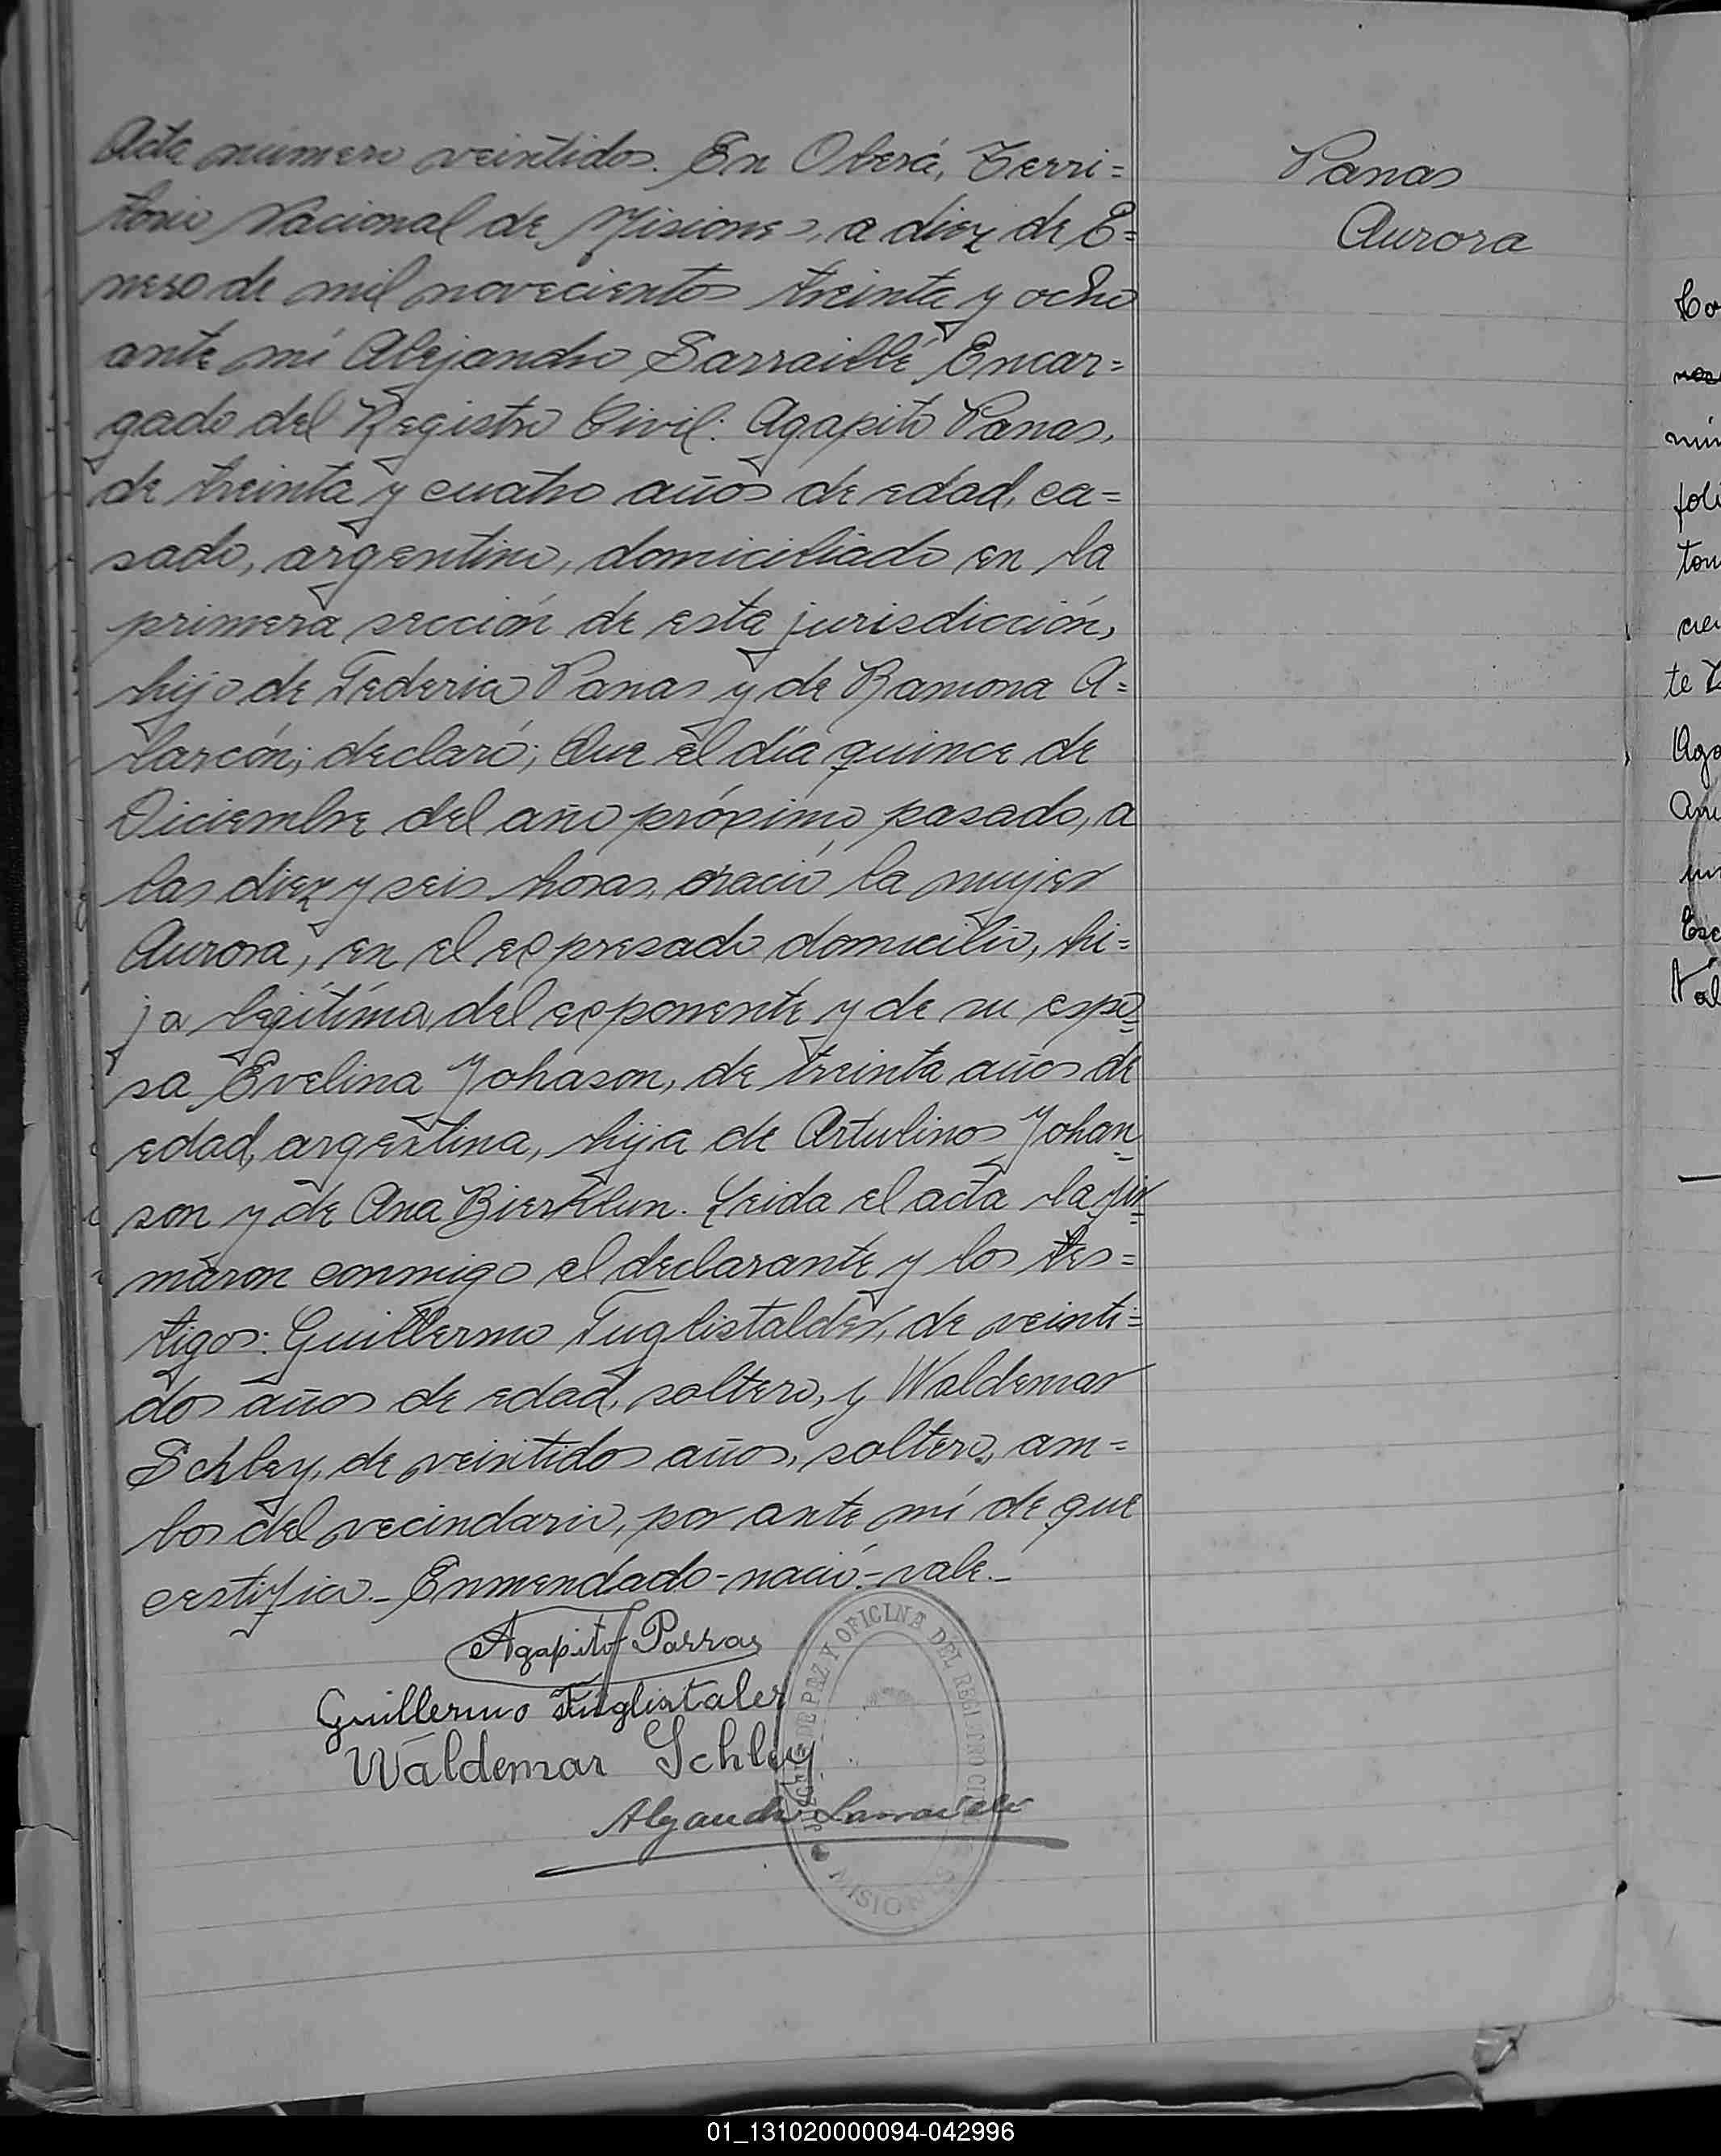 Acta número veintidos. En Oberá, Terri=
torio Nacional de Misiones, a diez de E=
nero de mil novecientos treinta y ocho
ante mí Alejandro Sarraillé Encar=
gado del Registro Civil: Agapito Panas,
de treinta y cuatro años de edad, ca=
sado, argentino, domiciliado en la
primera sección de esta jurisdicción,
hijo de Federico Panas y de Ramona A=
larcón; declaró; Que el día quince de
Diciembre del año próximo pasado, a
las diez y seis horas, nació la mujer
Aurora, en el expresado domicilio, hi=
ja legítima del exponente y de su espo=
sa Evelina Johason, de treinta años de
edad, argentina, hija de Artulinos Johan=
son y de Ana Bierklun. Leida el acta la fir=
maron conmigo el declarante y los tes=
tigos: Guillermo Fuglistalder, de veinti=
dos años de edad, soltero, y Waldemar
Schley, de veintidos años, soltero, am=
bos del vecindario, por ante mí de que
certifico.- Enmendado-nació-vale.-
Agapito Parras
Guillermo Füglistaler
Waldemar Schley
Alejandro Sarraillé
DE PAZ Y OFICINA DEL REGISTRO CIVIL
MISIONES
Panas
Aurora
te
01_131020000094-042996